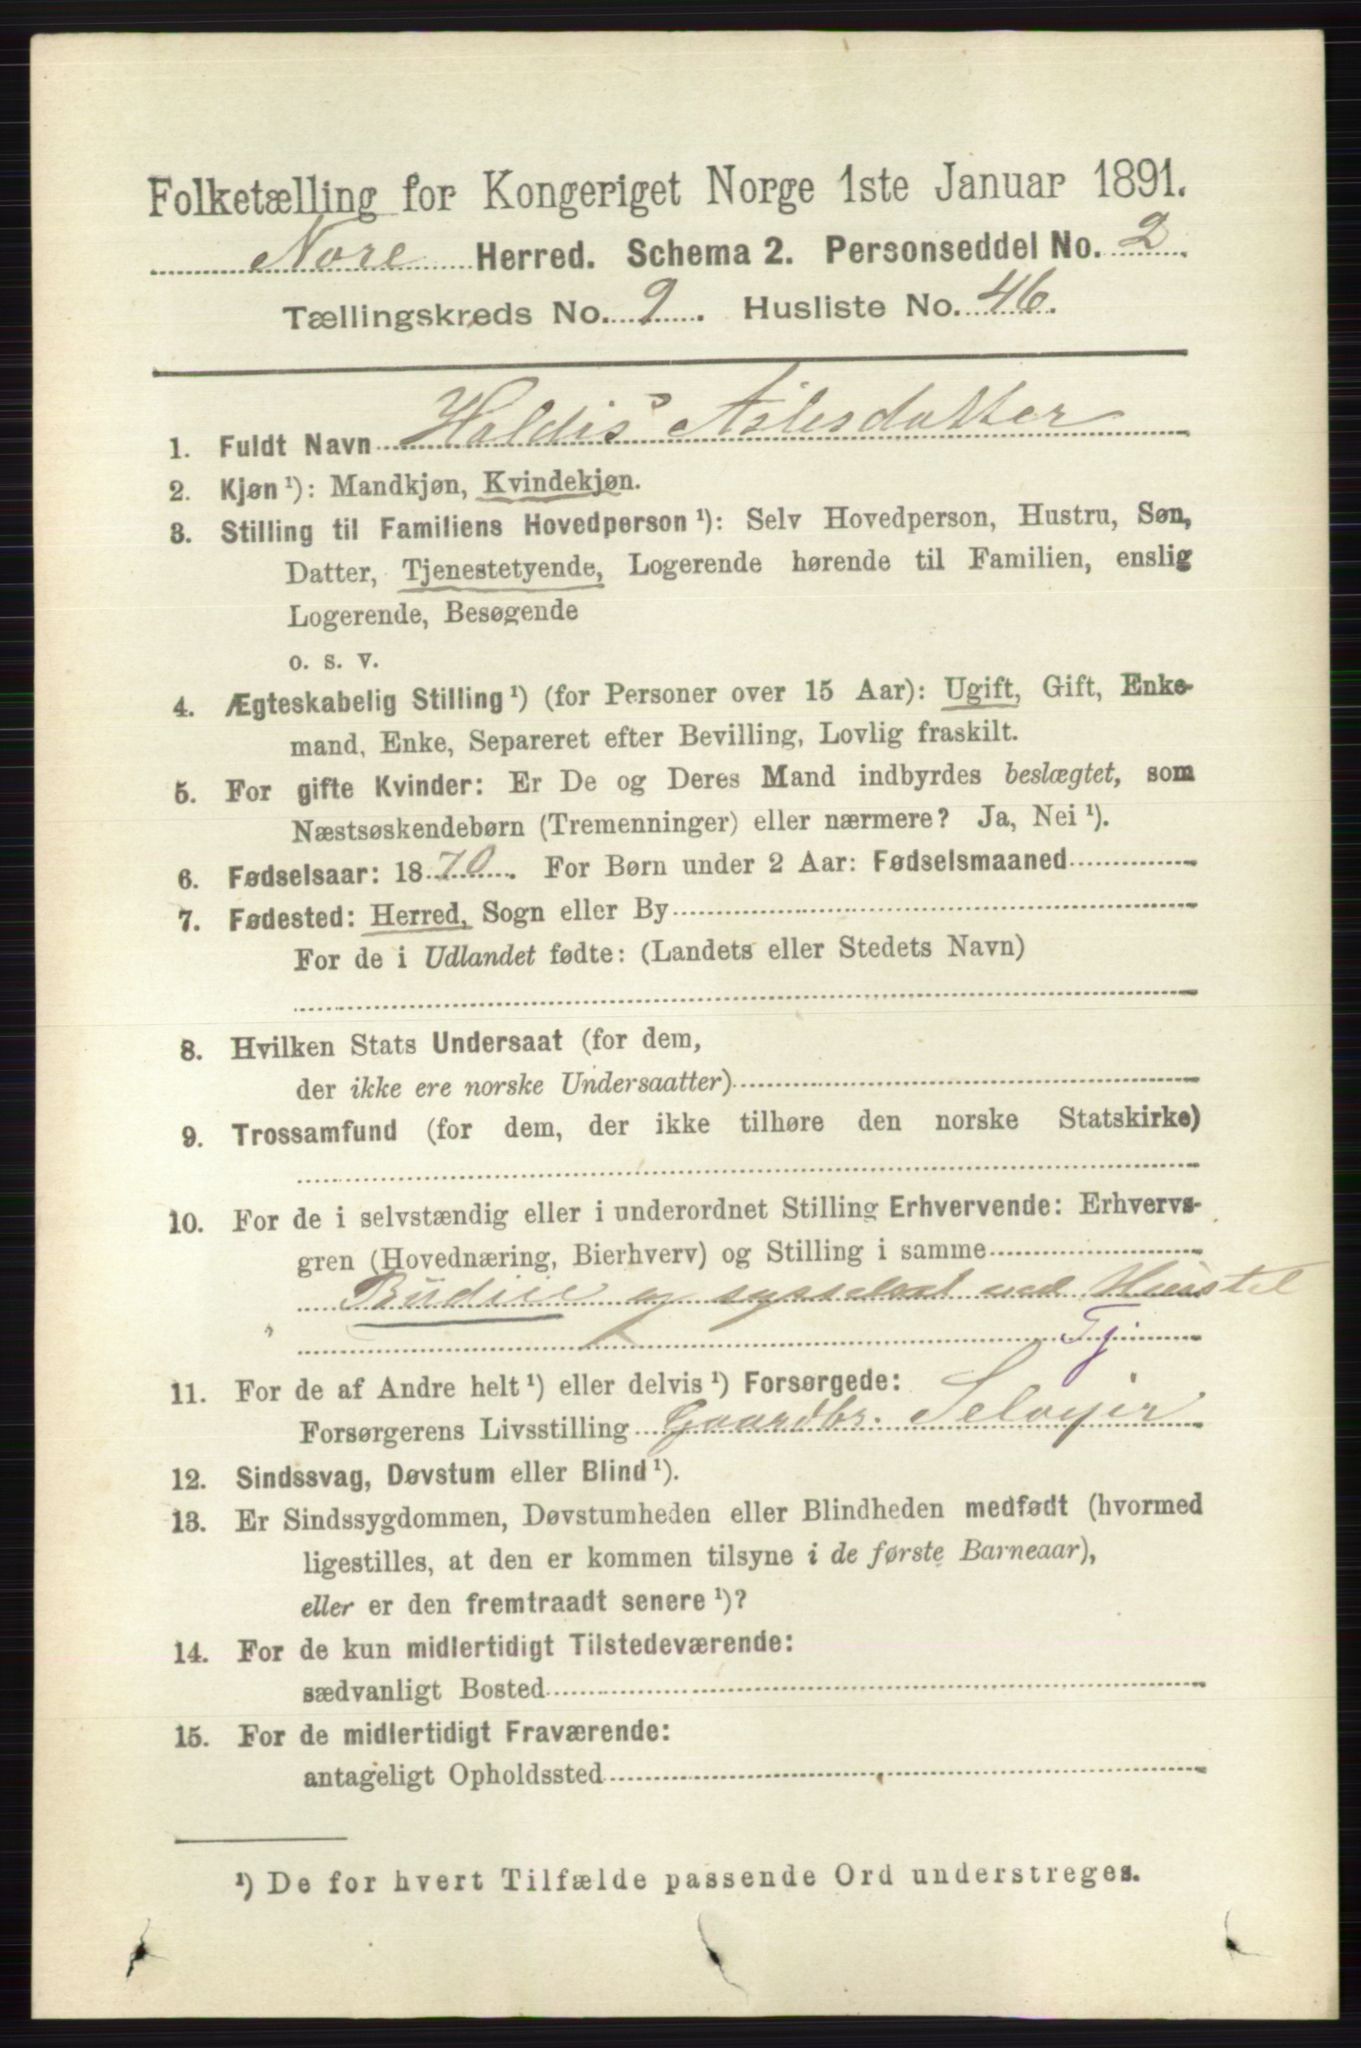 Folketælling for Kongeriget Norge 1ste Januar 1891.
Nore Herred. Schema 2. Personseddel No. 2
Tællingskreds No. 9. Husliste No. 46.
1. Fuldt Navn Haldis Aslesdatter
2. Kjøn ¹): Mandkjøn, Kvindekjøn.
3. Stilling til Familiens Hovedperson ¹): Selv Hovedperson, Hustru, Søn,
Datter, Tjenestetyende, Logerende hørende til Familien, enslig
Logerende, Besøgende
o. s. v.
4. Ægteskabelig Stilling ¹) (for Personer over 15 Aar): Ugift, Gift, Enke-
mand, Enke, Separeret efter Bevilling, Lovlig fraskilt.
5. For gifte Kvinder: Er De og Deres Mand indbyrdes beslægtet, som
Næstsøskendebørn (Tremenninger) eller nærmere? Ja, Nei ¹).
6. Fødselsaar: 1870. For Børn under 2 Aar: Fødselsmaaned
7. Fødested: Herred, Sogn eller By
For de i Udlandet fødte: (Landets eller Stedets Navn)
8. Hvilken Stats Undersaat (for dem,
der ikke ere norske Undersaatter)
9. Trossamfund (for dem, der ikke tilhøre den norske Statskirke)
10. For de i selvstændig eller i underordnet Stilling Erhvervende: Erhvervs-
gren (Hovednæring, Bierhverv) og Stilling i samme
Budeie og sysselsat ved Huusstel
Tj
11. For de af Andre helt ¹) eller delvis ¹) Forsørgede:
Forsørgerens Livsstilling Gaardbr. Selvejer
12. Sindssvag, Døvstum eller Blind ¹).
13. Er Sindssygdommen, Døvstumheden eller Blindheden medfødt (hvormed
ligestilles, at den er kommen tilsyne i de første Barneaar),
eller er den fremtraadt senere ¹)?
14. For de kun midlertidigt Tilstedeværende:
sædvanligt Bosted
15. For de midlertidigt Fraværende:
antageligt Opholdssted
¹) De for hvert Tilfælde passende Ord understreges.